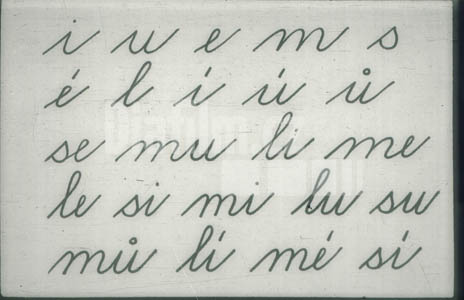 i u e m s
é l í ú ů
se mu li me
le si mi lu su
mů lí mé sí